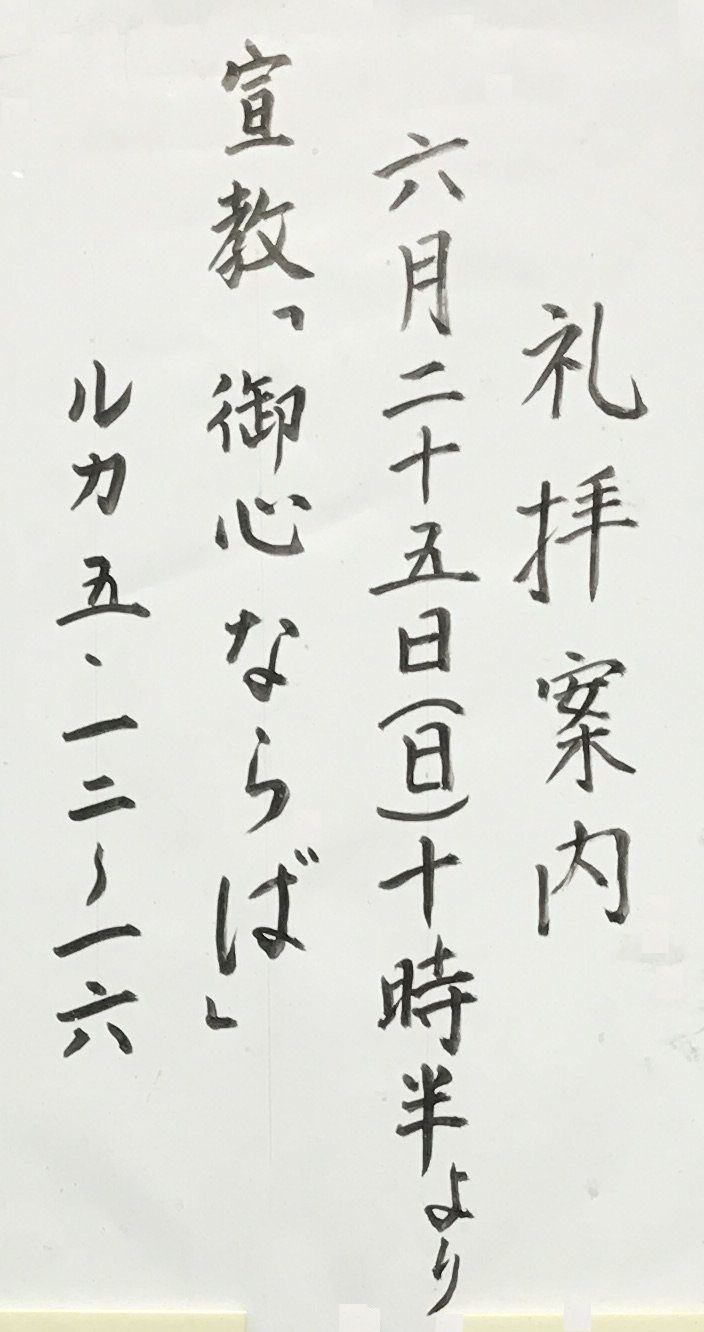 礼拝案内
六月二十五日(日)十時半より
宣教「御心ならば」
ルカ五・一二～一六